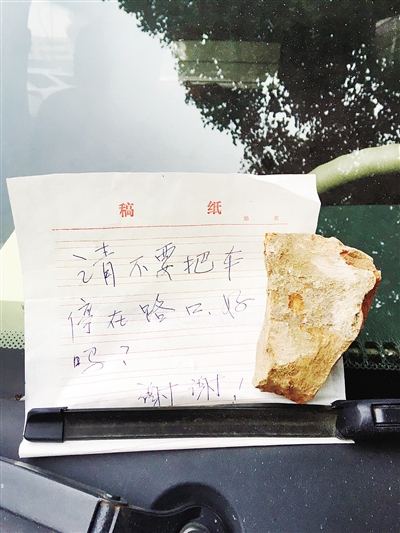 稿 纸
请不要把车
停在路口，好
吗？
谢谢！